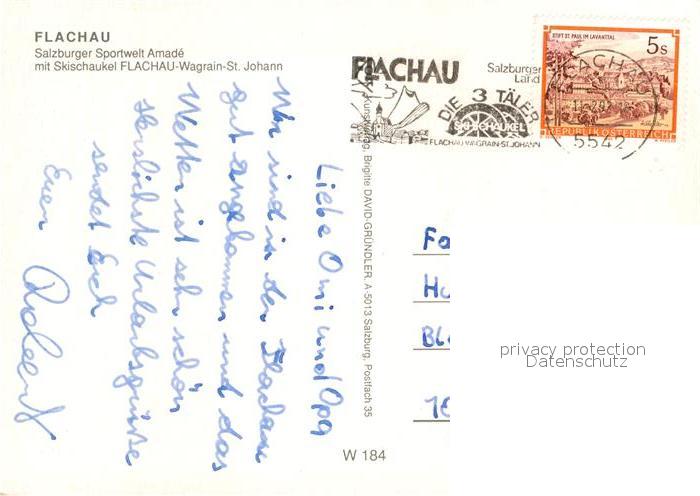 FLACHAU
Salzburger Sportwelt Amadé
mit Skischaukel FLACHAU-Wagrain-St. Johann
Liebe Omi und Opa
Wir sind in der Flachau
gut angekommen und das
Wetter ist sehr schön
Herzlichste Urlaubsgrüße
sendet Euch
Euer
Kunstverlag Brigitte DAVID-GRÜNDLER, A-5013 Salzburg, Postfach 35
W 184
FLACHAU
Salzburger
Land
DIE 3 TÄLER
SKISCHAUKEL
FLACHAU-WAGRAIN-ST.JOHANN
STIFT ST. PAUL IM LAVANTTAL
5 S
REPUBLIK ÖSTERREICH
FLACHAU
5542
Fa
Ha
Bl
privacy protection
Datenschutz